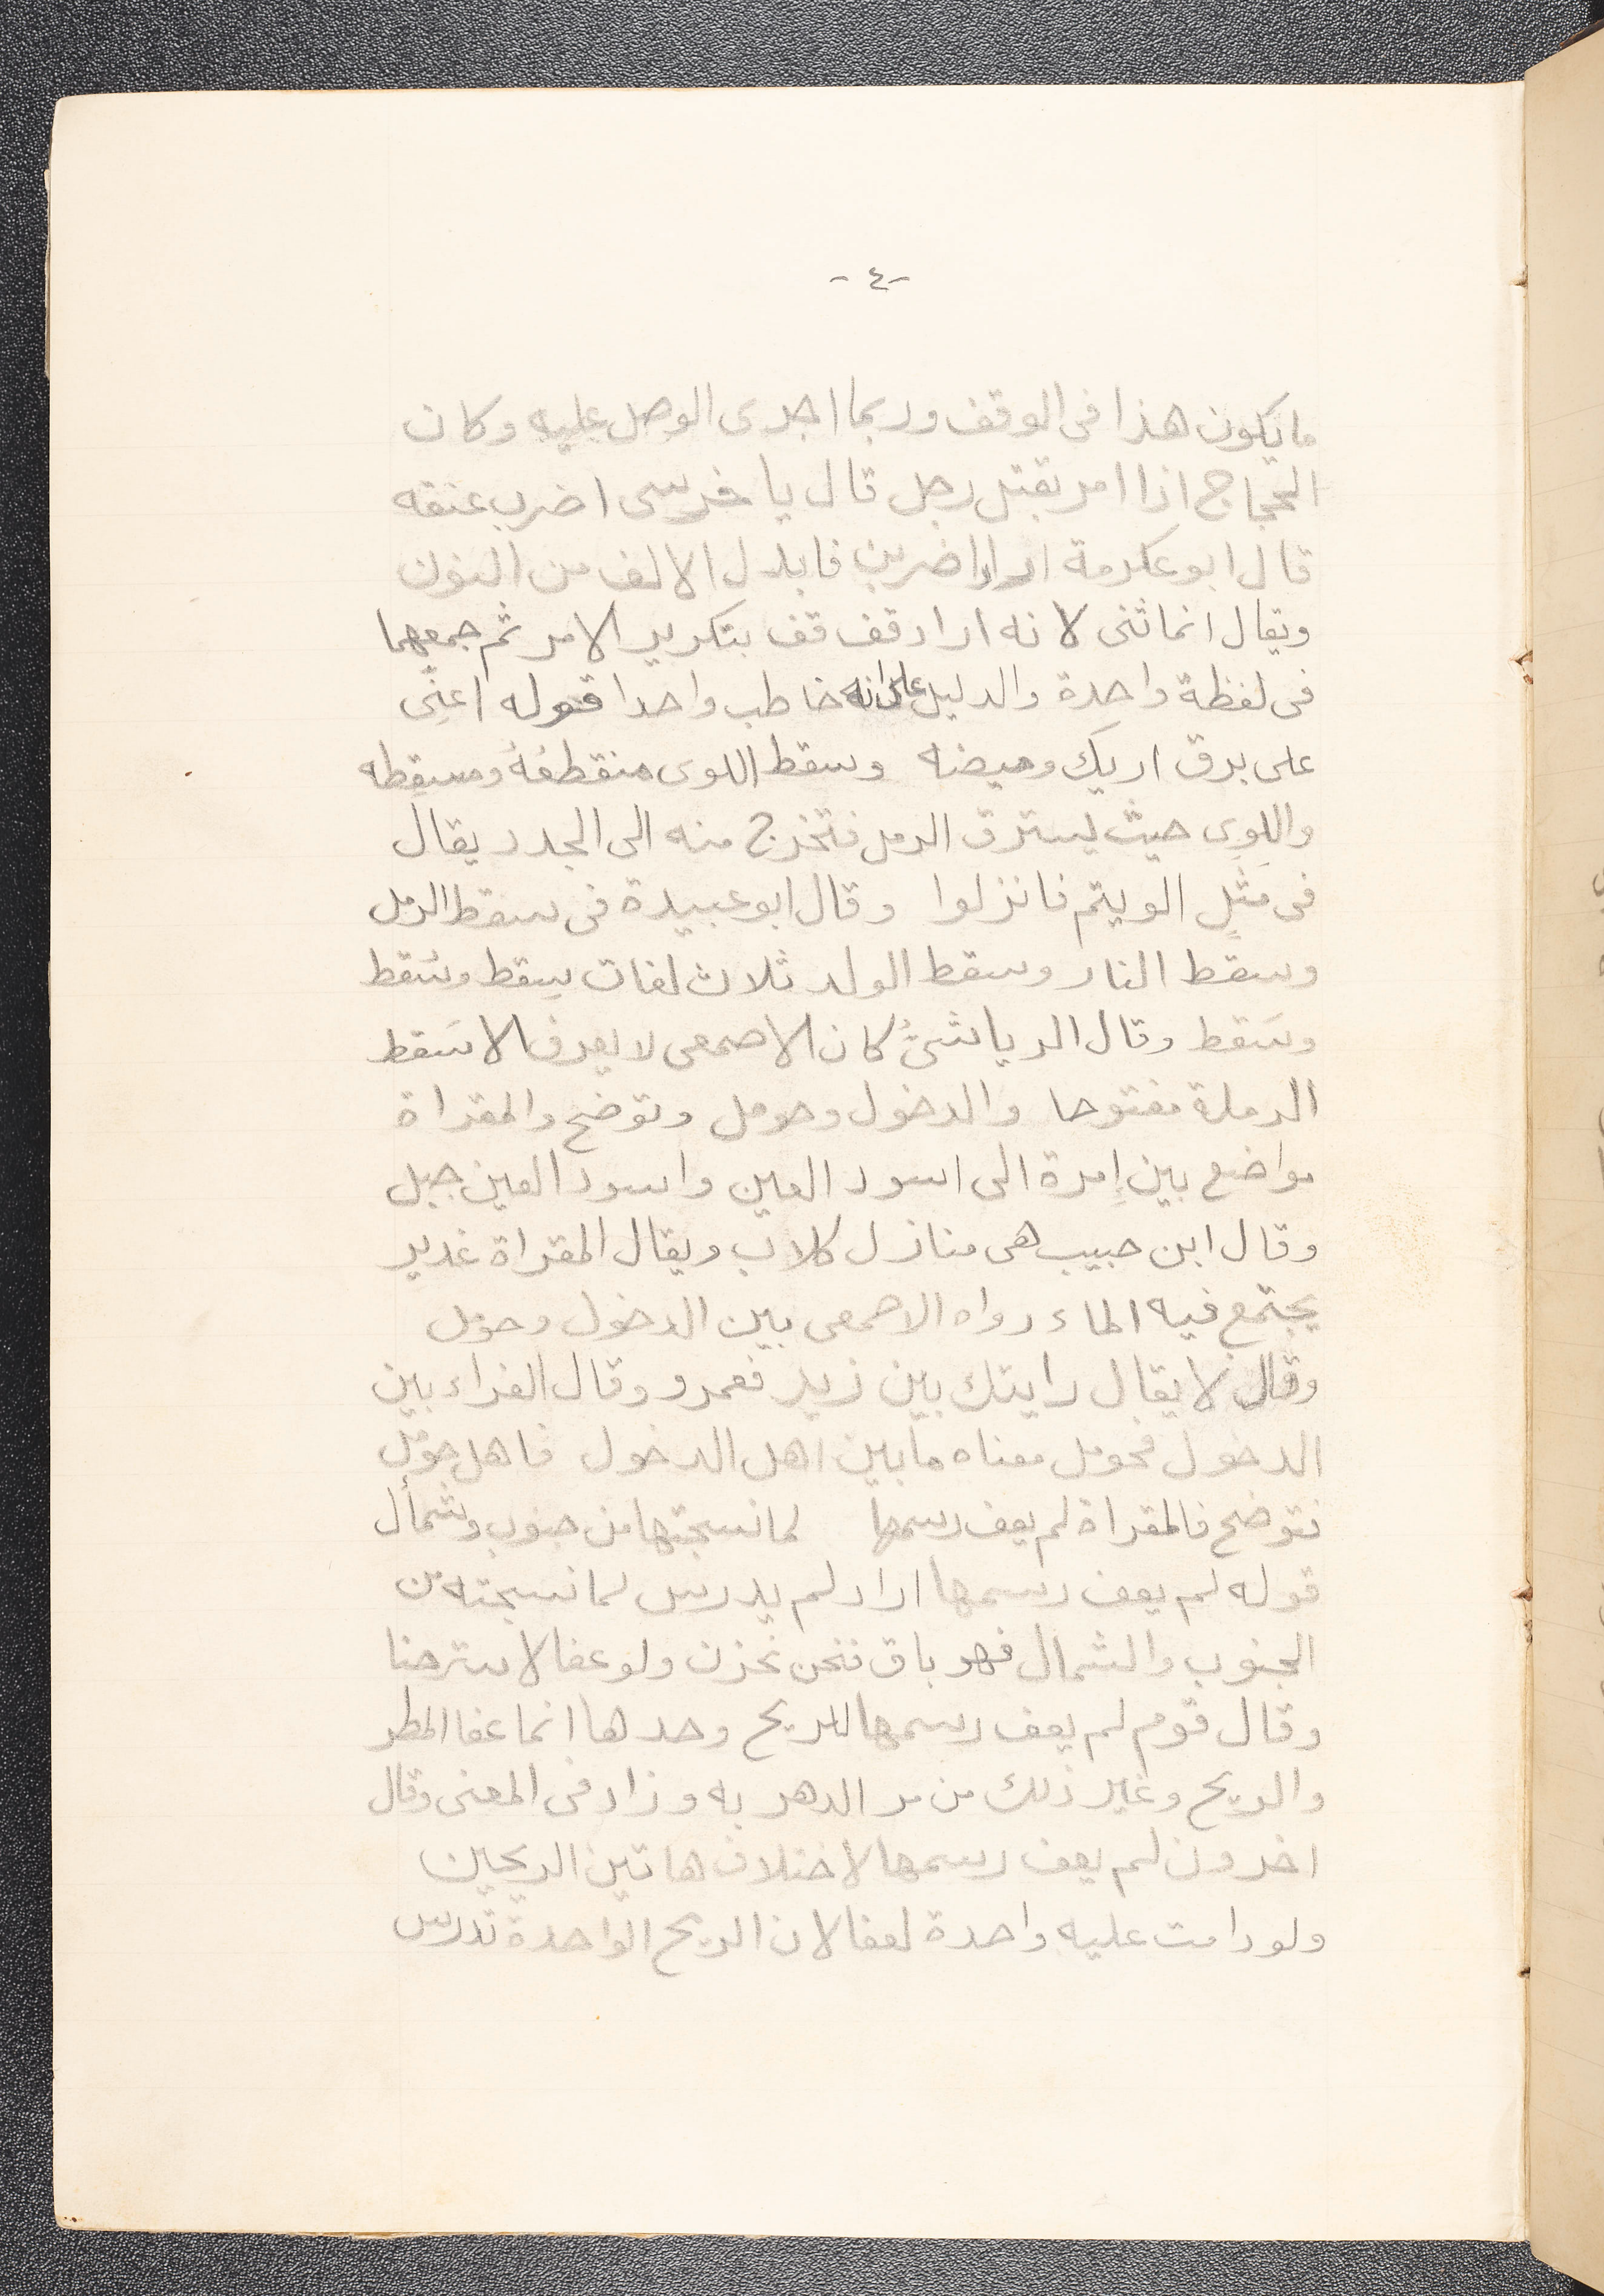 -٤-
ما يكون هذا فى الوقف وربما اجرى الوصل عليه وكان
الحجاج اذا امر بقتل رجل قال يا خرسى اضرب عنقه
قال ابو عكرمة اراد اضربن فابدل الالف من النون
ويقال انما ثنى لانه اراد قف قف بتكرير الامر ثم جمعهما
فى لفظة واحدة والدليل على انه خاطب واحدا قوله اعنّى
على برق اريك وميضه وسقط اللوى منقطعُهُ ومسقطه
واللِوى حيث يسترق الرمل فتخرج منه الى الجدد يقال
فى مَثَلٍ الويتم فانزلوا وقال ابو عبيدة فى سقط الرمل
وسقط النار وسقط الولد ثلاث لغات سِقط وسُقط
وسَقط وقال الرياشىُّ كان الاصمعى لا يعرف الا سَقط
الرملة مفتوحا والدخول وحومل وتوضح والمقراة
مواضع بين إمرة الى اسود العين واسود العين جبل
وقال ابن حبيب هى منازل كلاب ويقال المقراة غدير
يجتمع فيه الماء رواه الاصمعى بين الدخول وحومل
وقال لا يقال رايتك بين زيد فعمرو وقال الفراء بين
الدخول فحومل معناه ما بين اهل الدخول فاهل حومل
فتوضح فالمقراة لم يعف رسمها لما نسجتها من جنوب وشمأل
قوله لم يعف رسمها اراد لم يدرس لما نسجته من
الجنوب والشمال فهو باق فنحن نحزن ولو عفا لاسترحنا
وقال قوم لم يعف رسمها للريح وحدها انما عفا المطر
والريح وغير ذلك من مر الدهر به وزاد فى المعنى وقال
اخرون لم يعف رسمها لاختلاف هاتين الريحين
ولو دامت عليه واحدة لعفا لان الريح الواحدة تدرس